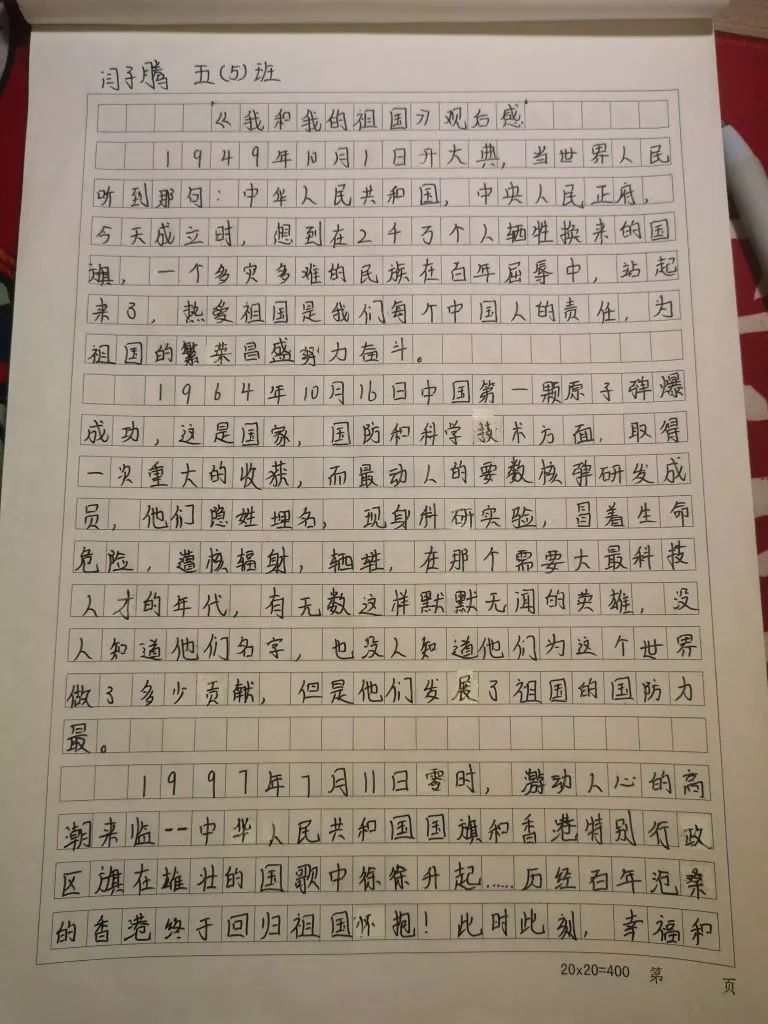 闫子腾 五(5)班
《我和我的祖国》观后感
1949年10月1日开大典，当世界人民
听到那句：中华人民共和国，中央人民正府，
今天成立时，想到在2千万个人牺牲换来的国
旗，一个多灾多难的民族在百年屈辱中，站起
来了，热爱祖国是我们每个中国人的责任，为
祖国的繁荣昌盛努力奋斗。
1964年10月16日中国第一颗原子弹爆
成功，这是国家，国防和科学技术方面，取得
一次重大的收获，而最动人的要数核弹研发成
员，他们隐姓埋名，现身科研实验，冒着生命
危险，遭核辐射，牺牲，在那个需要大最科技
人才的年代，有无数这样默默无闻的英雄，没
人知道他们名字，也没人知道他们为这个世界
做了多少贡献，但是他们发展了祖国的国防力
最。
1997年7月11日零时，激动人心的高
潮来临--中华人民共和国国旗和香港特别行政
区旗在雄壮的国歌中徐徐升起……历经百年沧桑
的香港终于回归祖国怀抱！此时此刻，幸福和
20x20=400 第 页